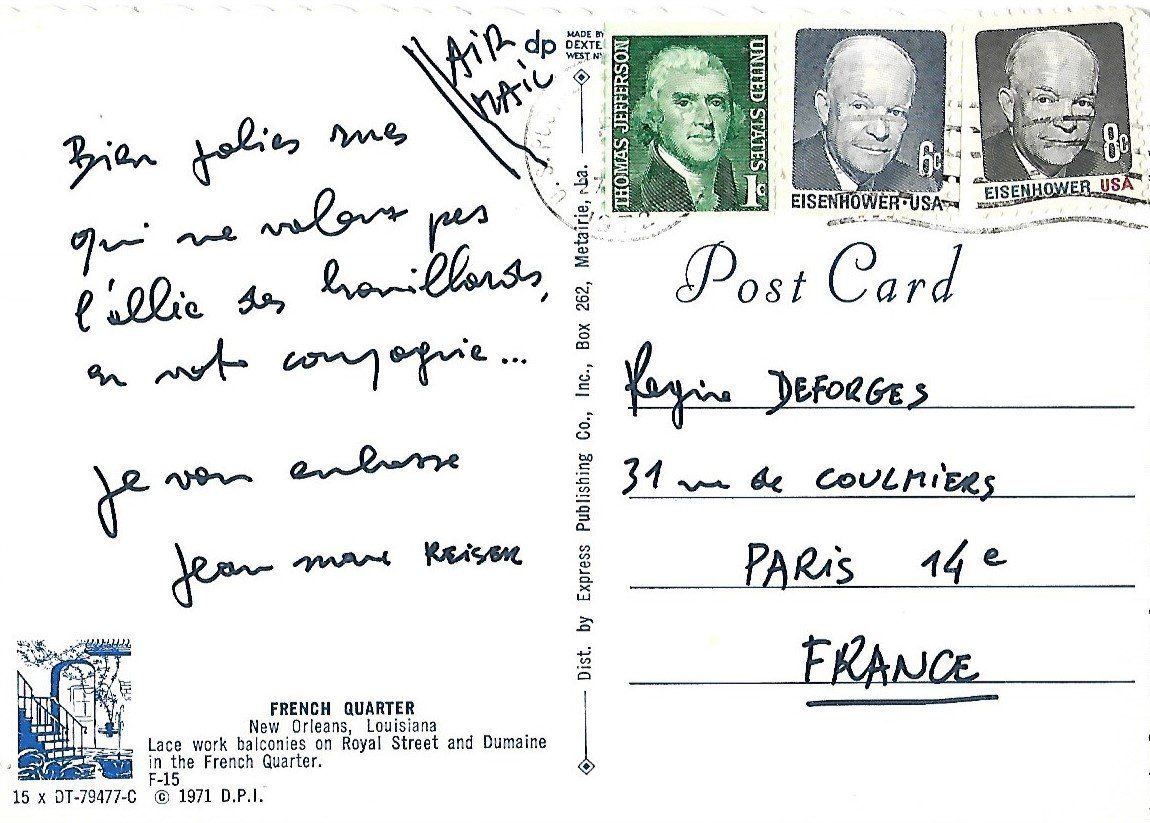 AIR
MAIL
Bien jolies rues
qui ne valent pas
l'allée des brouillards,
en votre compagnie...
Je vous embrasse
Jean Marc REISER
FRENCH QUARTER
New Orleans, Louisiana
Lace work balconies on Royal Street and Dumaine
in the French Quarter.
F-15
15 x DT-79477-C © 1971 D.P.I.
dp
MADE BY
DEXTE
WEST NY
Dist. by Express Publishing Co., Inc., Box 262, Metairie, La.
THOMAS JEFFERSON
UNITED STATES
1c
6c
EISENHOWER·USA
8c
EISENHOWER USA
Post Card
Régine DEFORGES
31 rue de COULMIERS
PARIS 14e
FRANCE